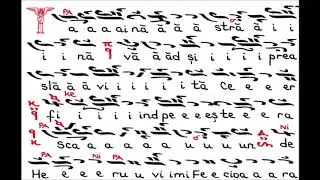 a a a a ină ă ă ă stră ă i i
i i nă vă ă ăd și i i i i prea
slă ă ă vi i i i i tă Ce e e er
fi i i i i ind pe e e ește e e ra
Sca a a a a a u u u un de
He e e e ru u vi imi Fe e cioa a ara